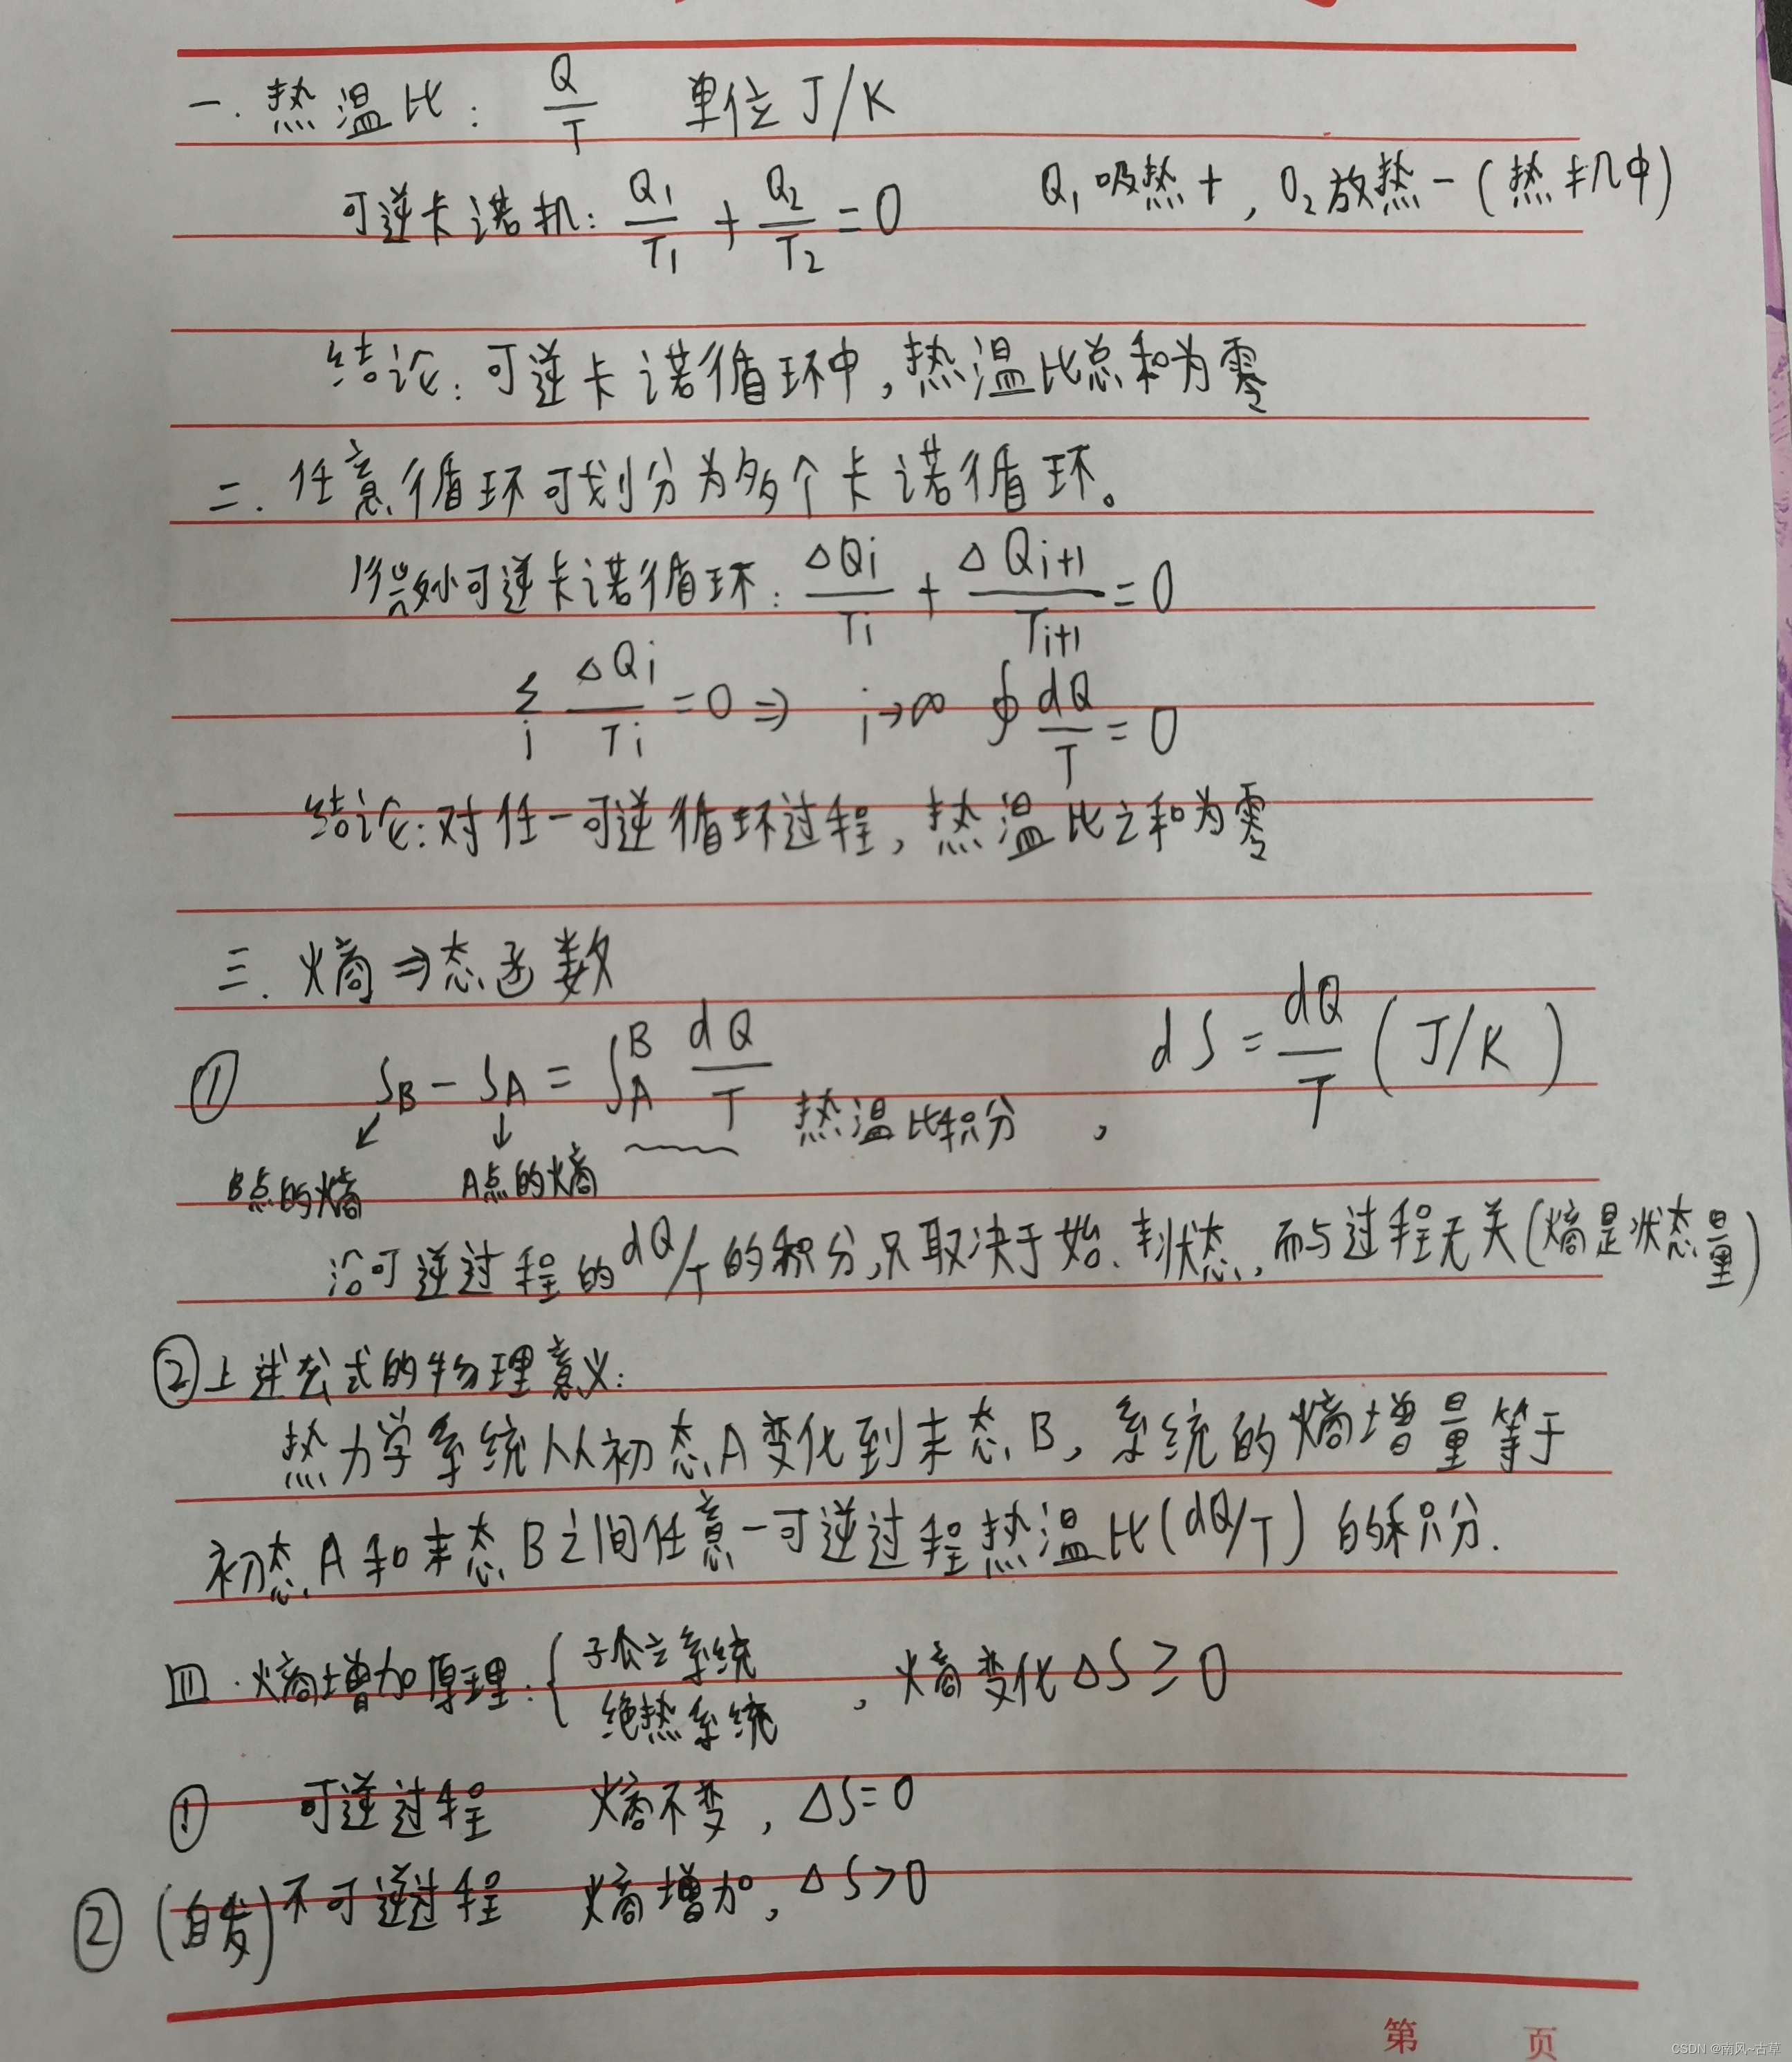 一.热温比: Q/T 单位 J/K
可逆卡诺机: Q₁/T₁ + Q₂/T₂ = 0 Q₁吸热+, Q₂放热-(热机中)
结论:可逆卡诺循环中,热温比总和为零
二.任意循环可划分为多个卡诺循环。
微小可逆卡诺循环: ΔQi/Ti + ΔQi+1/Ti+1 = 0
∑i ΔQi/Ti = 0 ⇒ i→∞ ∮dQ/T = 0
结论:对任一可逆循环过程,热温比之和为零
三.熵⇒态函数
① SB - SA = ∫_A^B dQ/T 热温比积分, dS = dQ/T (J/K)
B点的熵 A点的熵
沿可逆过程的dQ/T的积分,只取决于始、末状态,而与过程无关(熵是状态量)
②上述公式的物理意义:
热力学系统从初态A变化到末态B,系统的熵增量等于
初态A和末态B之间任意一可逆过程热温比(dQ/T)的积分.
四.熵增加原理:{孤立系统
绝热系统 ,熵变化ΔS≥0
① 可逆过程 熵不变,ΔS=0
② (自发)不可逆过程 熵增加,ΔS>0
第 页
CSDN @南风~古草